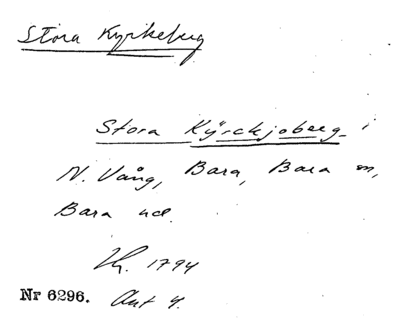 Stora Kyrkeberg
Stora Kÿrckjoberg i
N. Vång, Bara, Bara sn,
Bara hd.
1794
Nr 6296. Akt 4.